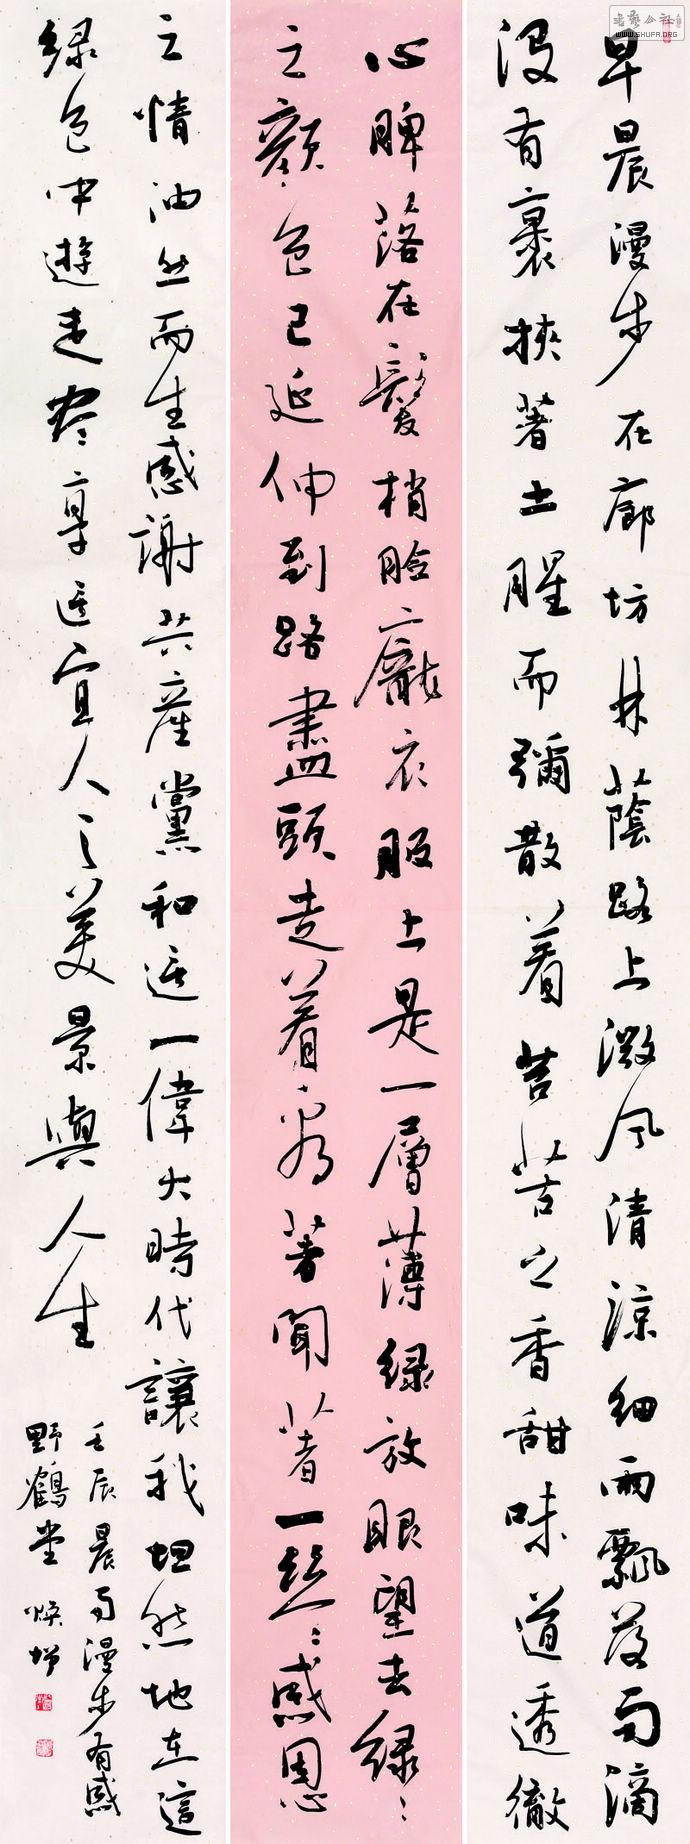 早晨漫步在廊坊林蔭路上微风清涼细雨飄落雨滴
没有裹挾著土腥而彌散着苦苦之香甜味道透徹
心脾落在鬢梢臉龐衣服上是一層薄绿放眼望去绿绿
之顏色已延伸到路盡頭走着看著聞著一丝丝感恩
之情油然而生感謝共產黨和这一偉大時代讓我坦然地在這
绿色中遊走尽享这宜人之美景與人生
壬辰晨雨漫步有感
野鶴堂
WWW.SHUFA.ORG